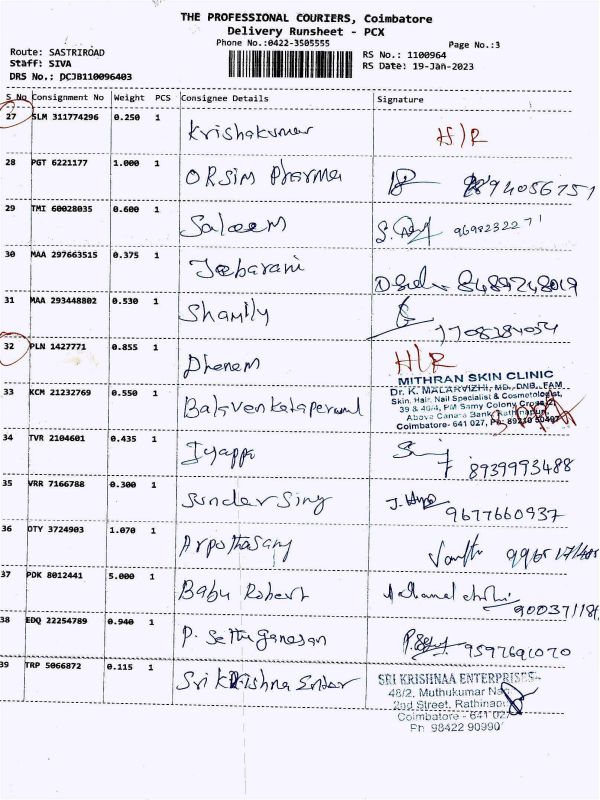 THE PROFESSIONAL COURIERS, Coimbatore
Delivery Runsheet - PCX
Phone No.:0422-3505555
Page No.:3
Route: SASTRIROAD
Staff: SIVA
DRS No.: DCJB110096403
RS No.: 1100964
RS Date: 19-Jan-2023
S No Consignment No Weight PCS Consignee Details Signature
27 SLM 311774296 0.250 1 Krishakumar H/R
28 PGT 6221177 1.000 1 ORSIM Pharma
29 TMI 60028035 0.600 1 Saleem
30 MAA 297663515 0.375 1 Jebarani 8489748019
31 MAA 293448802 0.530 1 Shamily 7708284054
32 PLN 1427771 0.855 1 Dhanem H/R
MITHRAN SKIN CLINIC
Dr. K. MALARVIZHI, MD., DNB., FAM
Skin, Hair, Nail Specialist & Cosmetologist,
39 & 40/4, PM Samy Colony Cross
Above Canara Bank, Rathinapuri
Coimbatore- 641 027, Ph: 89210 50497
33 KCM 21232769 0.550 1 Balavenkataperumal
34 TVR 2104601 0.435 1 Iyappa 8939993488
35 VRR 7166788 0.300 1 Sunder Sing 9677660937
36 OTY 3724903 1.070 1 Arputhasamy
37 PDK 8012441 5.000 1 Babu Robert
38 EDQ 22254789 0.940 1 P. Sethu ganesan 9597691070
39 TRP 5066872 0.115 1 Sri Krishna Enter
SRI KRISHNAA ENTERPRISES
48/2, Muthukumar Na
2nd Street, Rathinapu
Coimbatore - 641 027
Ph 98422 90990